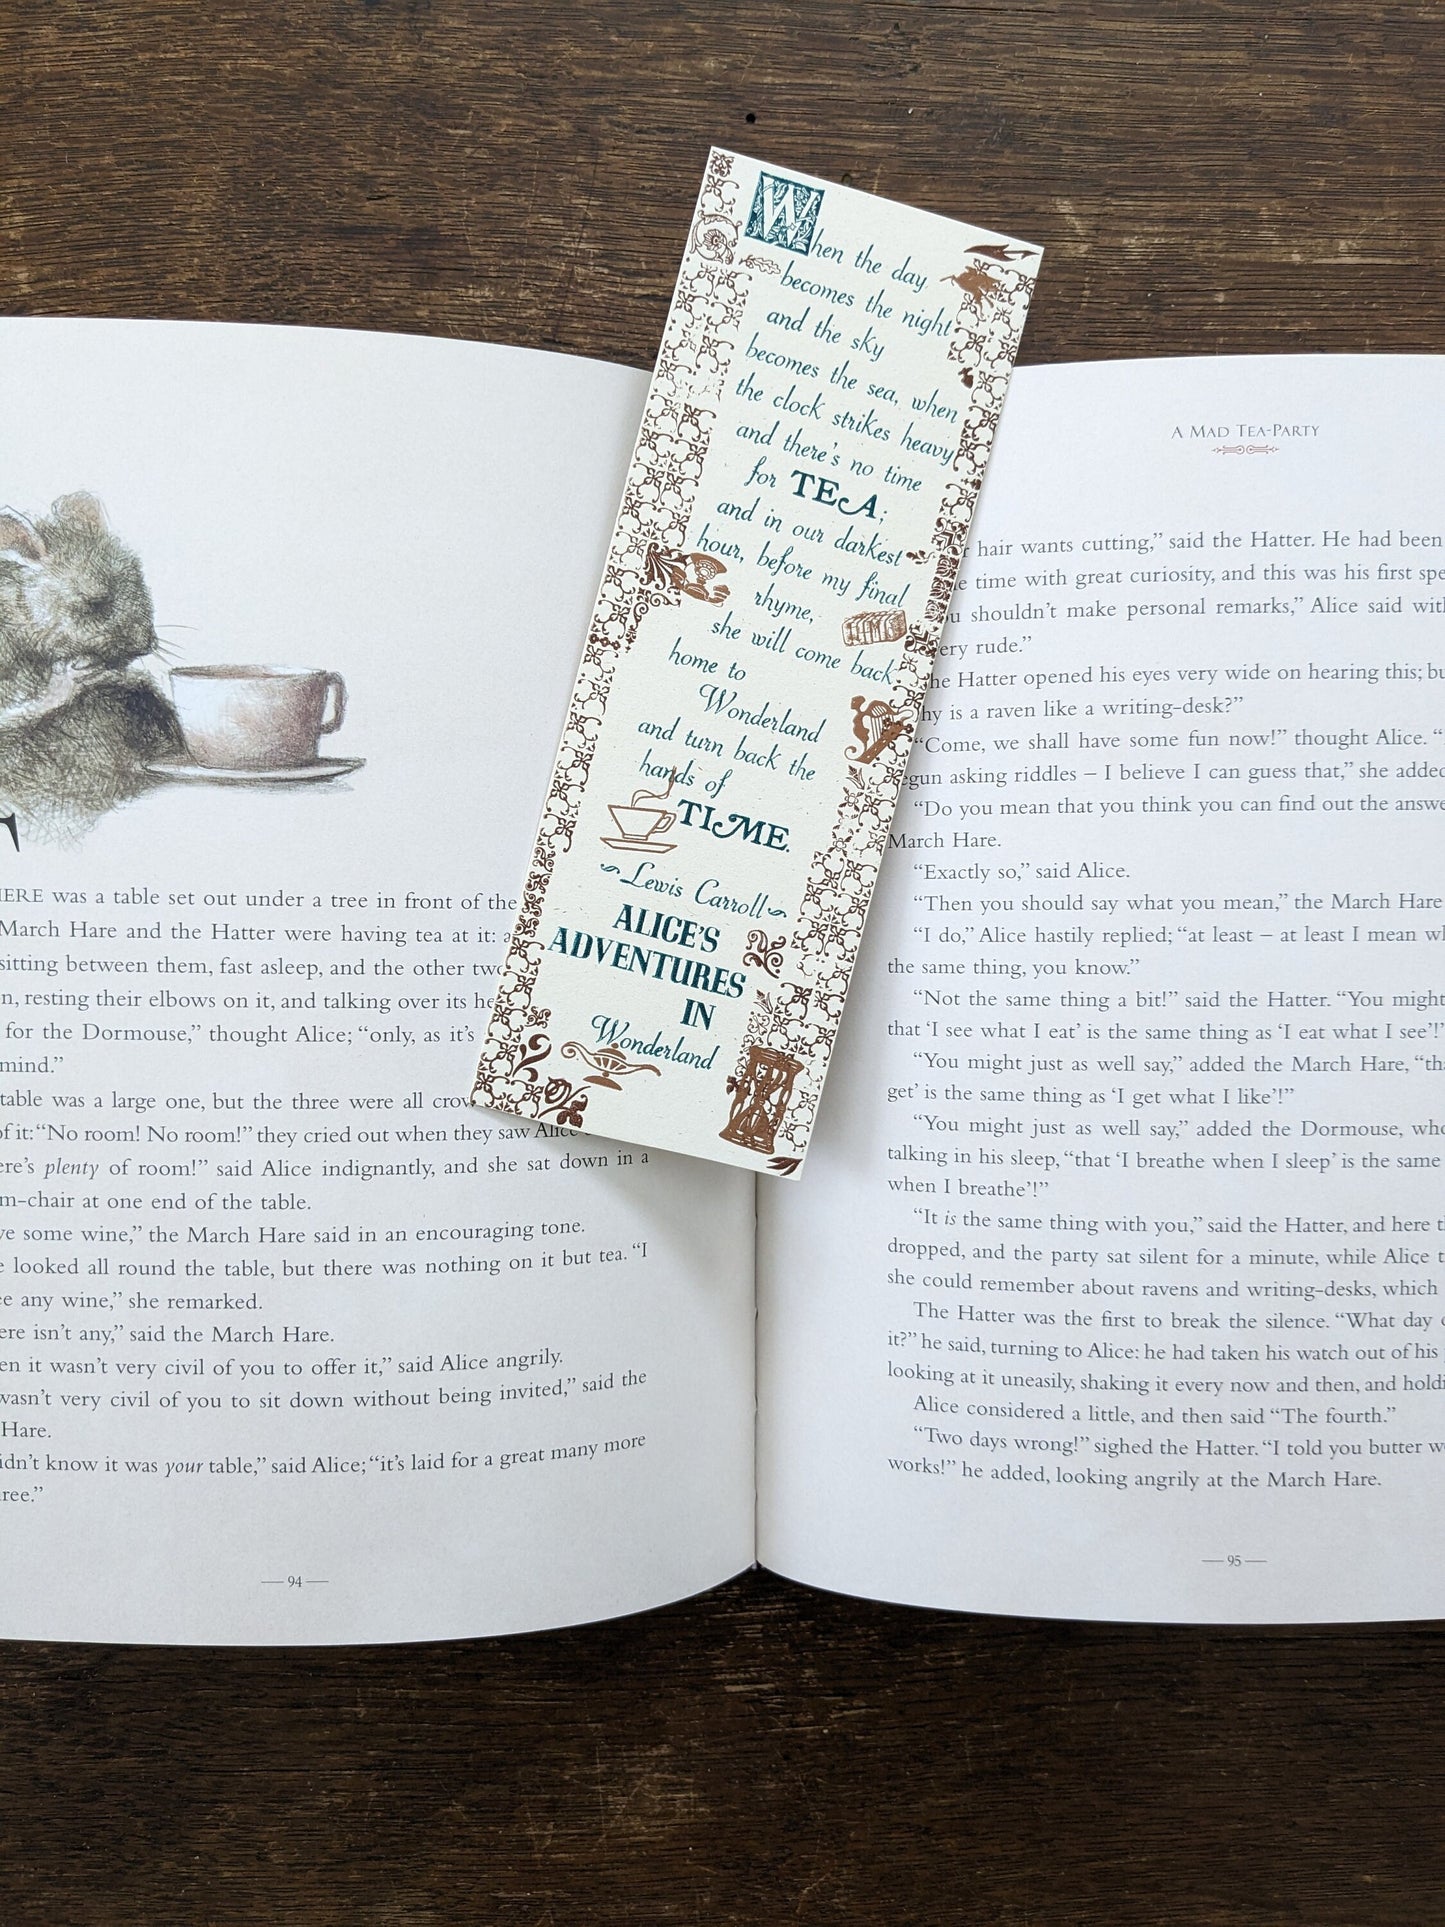 When the day
becomes the night
and the sky
becomes the sea, when
the clock strikes heavy
and there's no time
for TEA;
and in our darkest
hour, before my final
rhyme,
she will come back
home to
Wonderland
and turn back the
hands of
TIME.
Lewis Carroll
ALICE'S
ADVENTURES
IN
Wonderland
was a table set out under a tree in front of the
March Hare and the Hatter were having tea at it:
sitting between them, fast asleep, and the other
resting their elbows on it, and talking over its
for the Dormouse,” thought Alice; “only, as it’s
mind.”
table was a large one, but the three were all
of it: “No room! No room!” they cried out when they saw Alice
plenty of room!” said Alice indignantly, and she sat down in a
at one end of the table.
some wine,” the March Hare said in an encouraging tone.
looked all round the table, but there was nothing on it but tea. “I
any wine,” she remarked.
isn’t any,” said the March Hare.
it wasn’t very civil of you to offer it,” said Alice angrily.
wasn’t very civil of you to sit down without being invited,” said the
Hare.
know it was your table,” said Alice; “it’s laid for a great many more
— 94 —
A MAD TEA-PARTY
hair wants cutting,” said the Hatter. He had been
time with great curiosity, and this was his first
shouldn’t make personal remarks,” Alice said
rude.”
Hatter opened his eyes very wide on hearing this;
is a raven like a writing-desk?”
“Come, we shall have some fun now!” thought Alice. “
asking riddles – I believe I can guess that,” she added
“Do you mean that you think you can find out the
March Hare.
“Exactly so,” said Alice.
“Then you should say what you mean,” the March Hare
“I do,” Alice hastily replied; “at least – at least I mean
the same thing, you know.”
“Not the same thing a bit!” said the Hatter. “You might
that ‘I see what I eat’ is the same thing as ‘I eat what I see’!”
“You might just as well say,” added the March Hare,
get’ is the same thing as ‘I get what I like’!”
“You might just as well say,” added the Dormouse,
talking in his sleep, “that ‘I breathe when I sleep’ is the same
when I breathe’!”
“It is the same thing with you,” said the Hatter, and here
dropped, and the party sat silent for a minute, while Alice
she could remember about ravens and writing-desks, which
The Hatter was the first to break the silence. “What day
it?” he said, turning to Alice: he had taken his watch out of his
looking at it uneasily, shaking it every now and then, and
Alice considered a little, and then said “The fourth.”
“Two days wrong!” sighed the Hatter. “I told you butter
works!” he added, looking angrily at the March Hare.
— 95 —